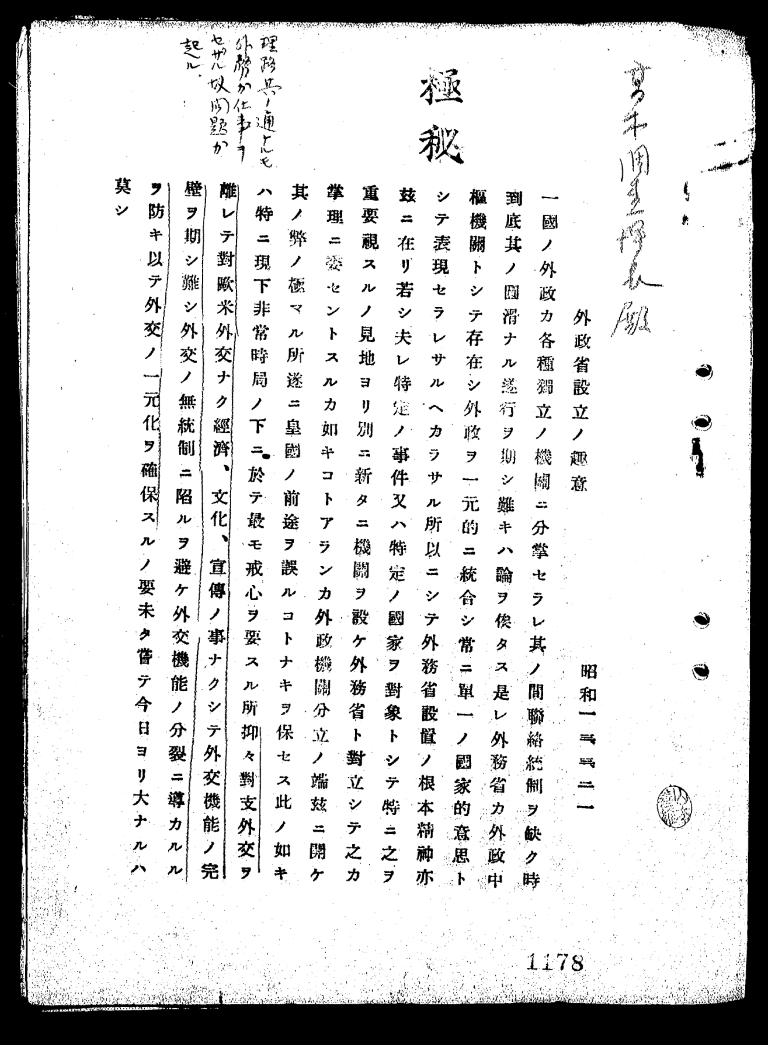 極秘
理路其ノ通ナルモ
外務カ仕事ヲ
セザル故問題カ
起ル．
高木調査課長殿
外政省設立ノ趣意
昭和一三、三、二一
一國ノ外政カ各種獨立ノ機關ニ分掌セラレ其ノ間聯絡統制ヲ缺ク時
到底其ノ圓滑ナル遂行ヲ期シ難キハ論ヲ俟タス是レ外務省カ外政中
樞機關トシテ存在シ外政ヲ一元的ニ統合シ常ニ單一ノ國家的意思ト
シテ表現セラレサルヘカラサル所以ニシテ外務省設置ノ根本精神亦
茲ニ在リ若シ夫レ特定ノ事件又ハ特定ノ國家ヲ對象トシテ特ニ之ヲ
重要視スルノ見地ヨリ別ニ新タニ機關ヲ設ケ外務省ト對立シテ之カ
掌理ニ委セントスルカ如キコトアランカ外政機關分立ノ端茲ニ開ケ
其ノ弊ノ極マル所遂ニ皇國ノ前途ヲ誤ルコトナキヲ保セス此ノ如キ
ハ特ニ現下非常時局ノ下ニ於テ最モ戒心ヲ要スル所抑々對支外交ヲ
離レテ對歐米外交ナク經濟、文化、宣傳ノ事ナクシテ外交機能ノ完
壁ヲ期シ難シ外交ノ無統制ニ陷ルヲ避ケ外交機能ノ分裂ニ導カルル
ヲ防キ以テ外交ノ一元化ヲ確保スルノ要未タ嘗テ今日ヨリ大ナルハ
莫シ
1178